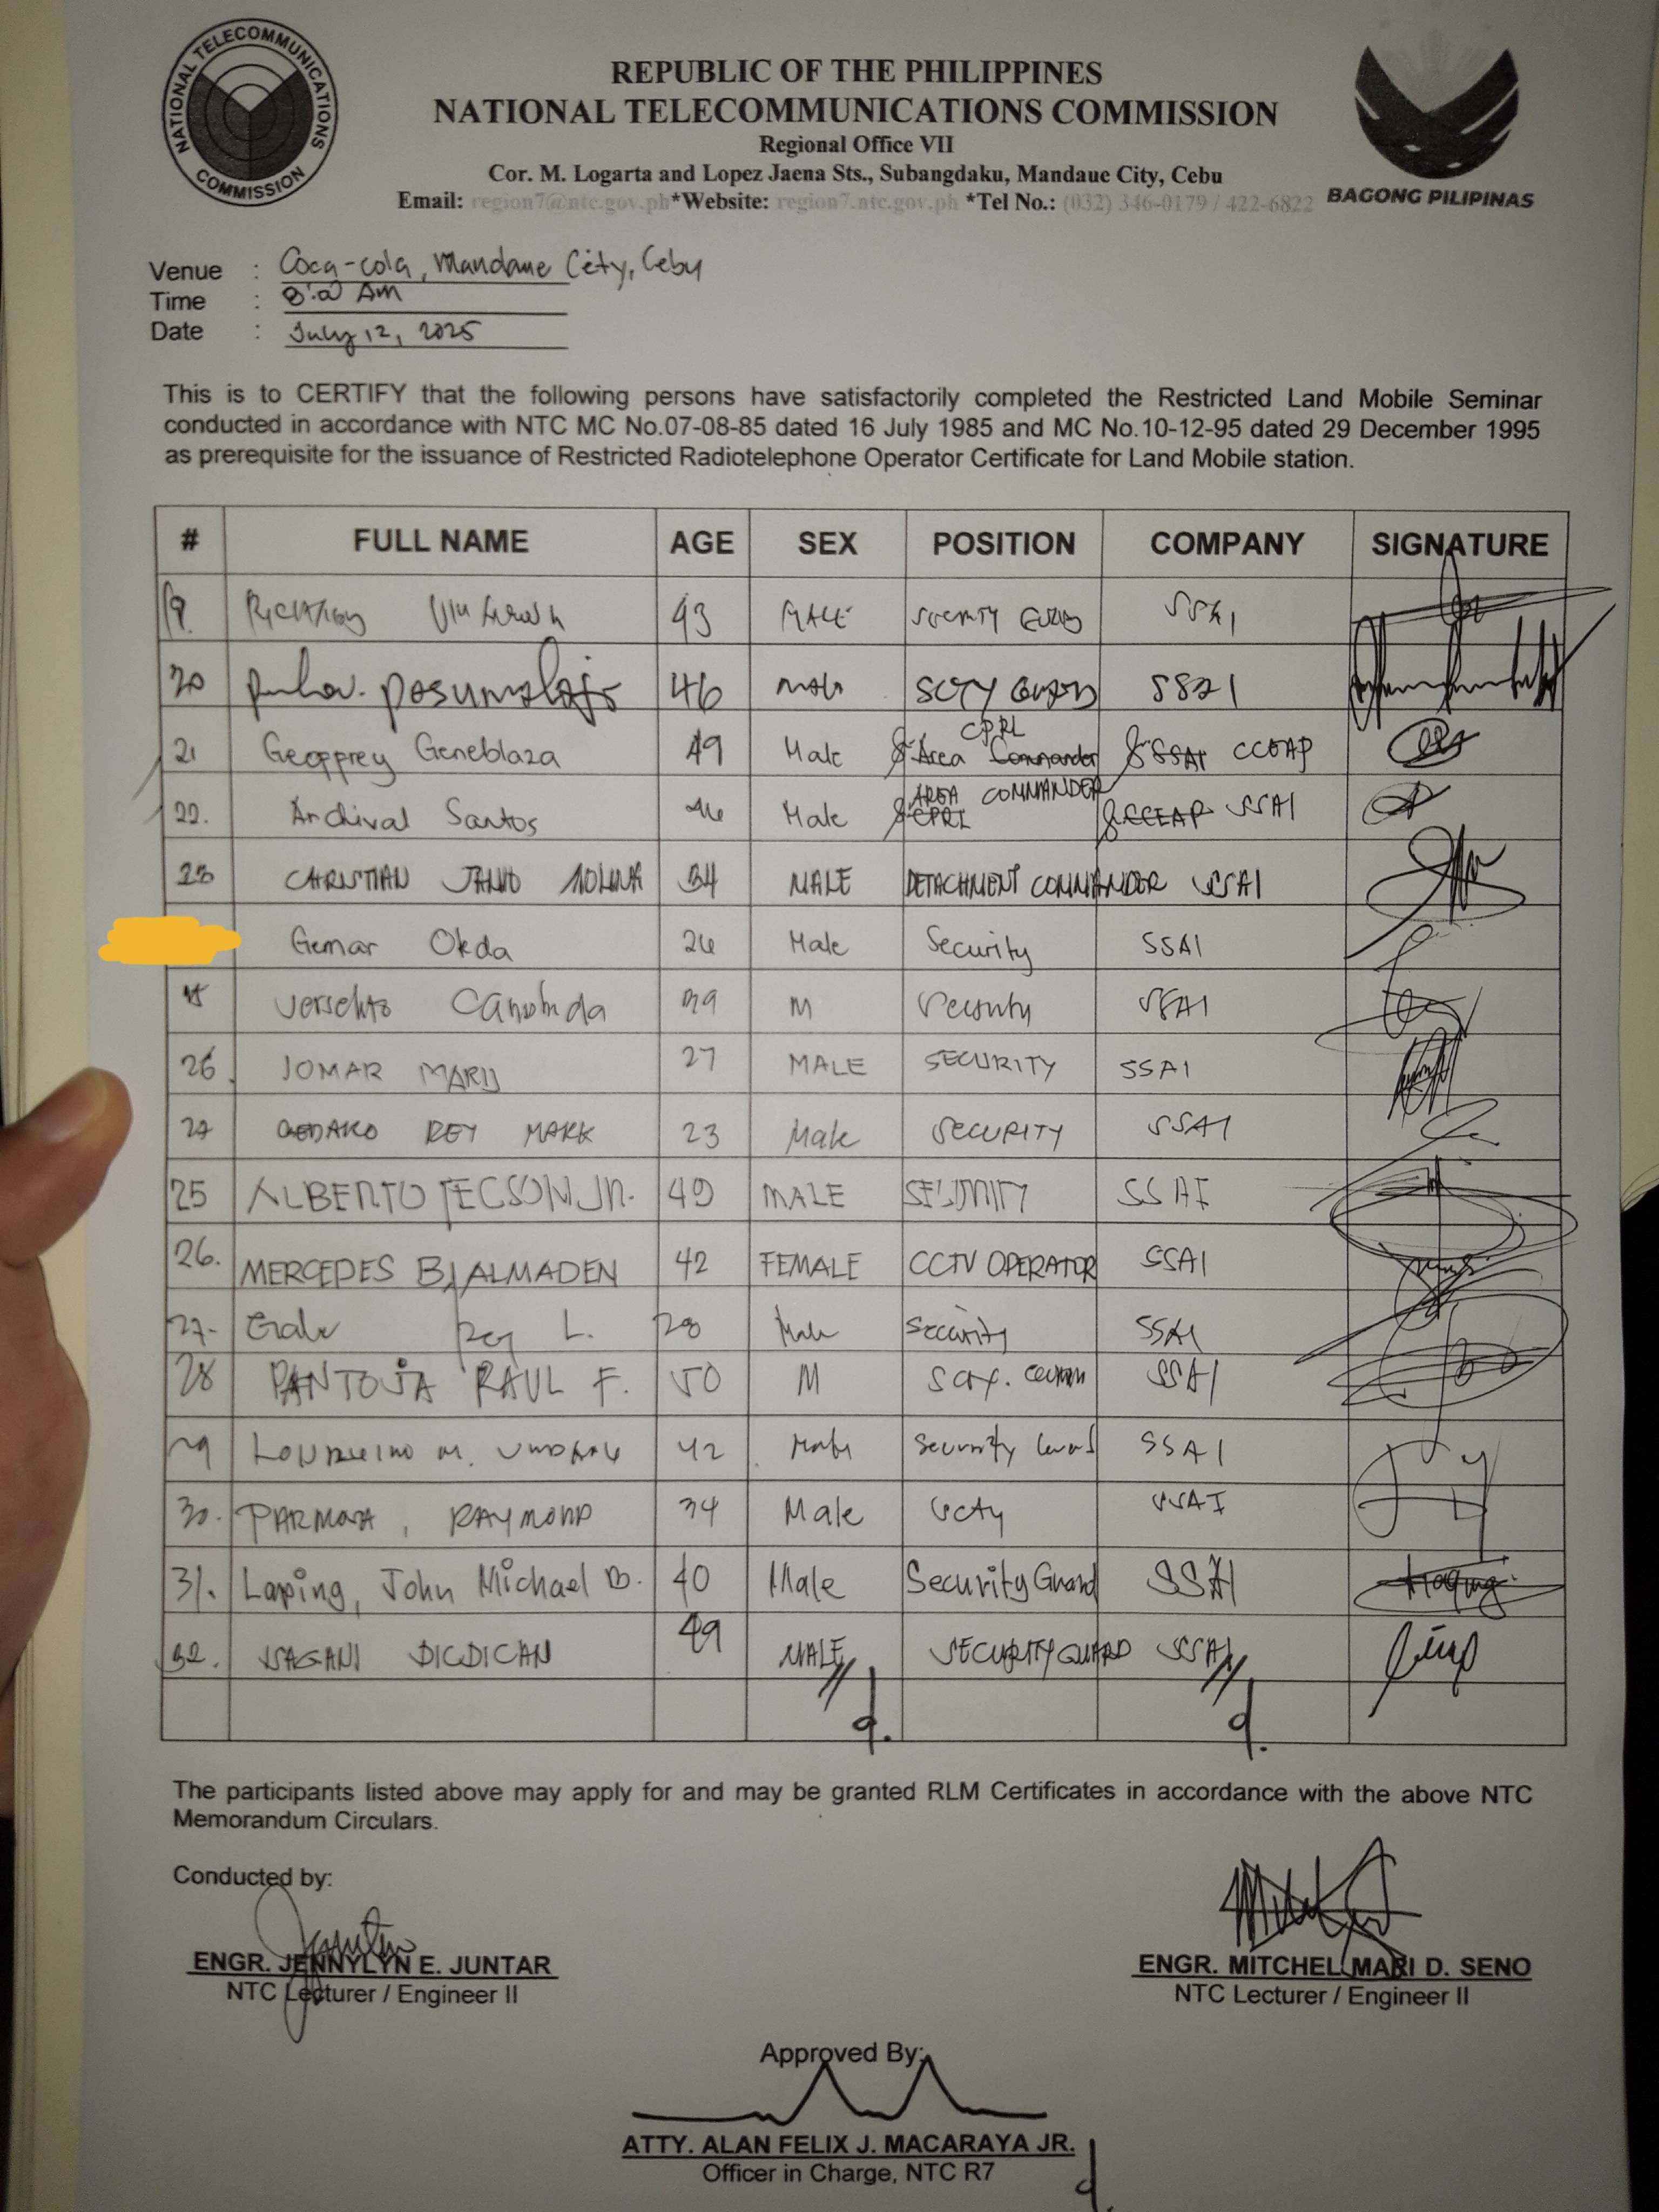 NATIONAL TELECOMMUNICATIONS COMMISSION
REPUBLIC OF THE PHILIPPINES
NATIONAL TELECOMMUNICATIONS COMMISSION
Regional Office VII
Cor. M. Logarta and Lopez Jaena Sts., Subangdaku, Mandaue City, Cebu
Email: region7@ntc.gov.ph*Website: region7.ntc.gov.ph *Tel No.: (032) 346-0179 / 422-6822
BAGONG PILIPINAS
Venue : Coca-cola, Mandaue City, Cebu
Time : 8:00 AM
Date : July 12, 2025
This is to CERTIFY that the following persons have satisfactorily completed the Restricted Land Mobile Seminar
conducted in accordance with NTC MC No.07-08-85 dated 16 July 1985 and MC No.10-12-95 dated 29 December 1995
as prerequisite for the issuance of Restricted Radiotelephone Operator Certificate for Land Mobile station.
# FULL NAME AGE SEX POSITION COMPANY SIGNATURE
19. 43 MALE SSAI
20 46 Male SCTY GUARD SSAI
21 Geoffrey Geneblaza 49 Male Area Commander CPRL SSAI CCEAP
22. Archival Santos Male CPRL AREA COMMANDER CCEAP SSAI
23 CHRISTIAN MOLINA 34 MALE DETACHMENT COMMANDER SSAI
Gemar Okda Male Security SSAI
39 M Security SSAI
26. JOMAR 27 MALE SECURITY SSAI
27 REY MARK 23 Male SECURITY SSAI
25 ALBERTO TECSON JR. 49 MALE SECURITY SSAI
26. MERCEDES B. ALMADEN 42 FEMALE CCTV OPERATOR SSAI
27. Rey L. 28 Male Security SSAI
28 PANTOJA RAUL F. 50 M SSAI
29 42 Male Security Guard SSAI
30. RAYMOND 34 Male Scty SSAI
31. Laping, John Michael B. 40 Male Security Guard SSAI
32. ISAGANI DICDICAN 49 MALE SECURITY GUARD SSAI
The participants listed above may apply for and may be granted RLM Certificates in accordance with the above NTC
Memorandum Circulars.
Conducted by:
ENGR. JENNYLYN E. JUNTAR
NTC Lecturer / Engineer II
ENGR. MITCHEL MARI D. SENO
NTC Lecturer / Engineer II
Approved By:
ATTY. ALAN FELIX J. MACARAYA JR.
Officer in Charge, NTC R7